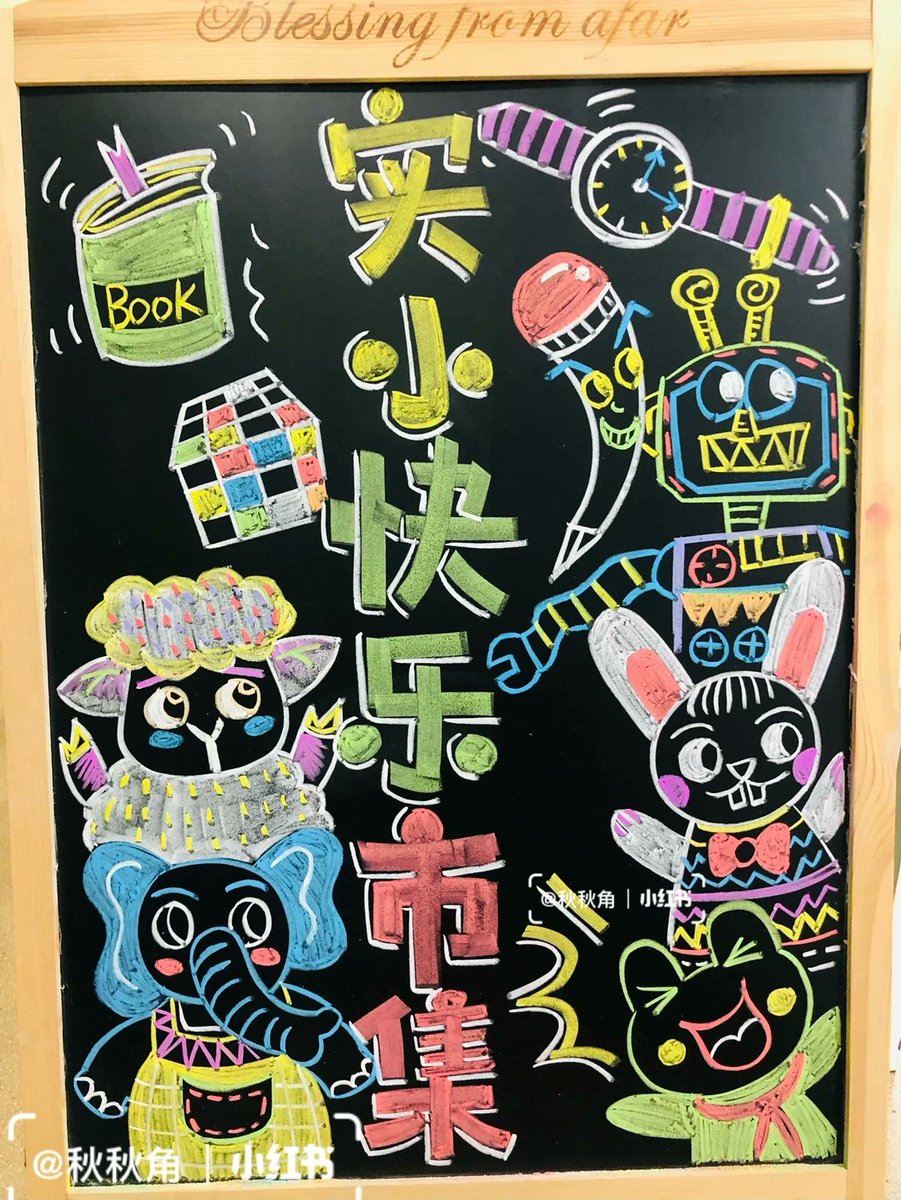 Blessing from afar
实小快乐市集
Book
@秋秋角 | 小红书
@秋秋角 | 小红书